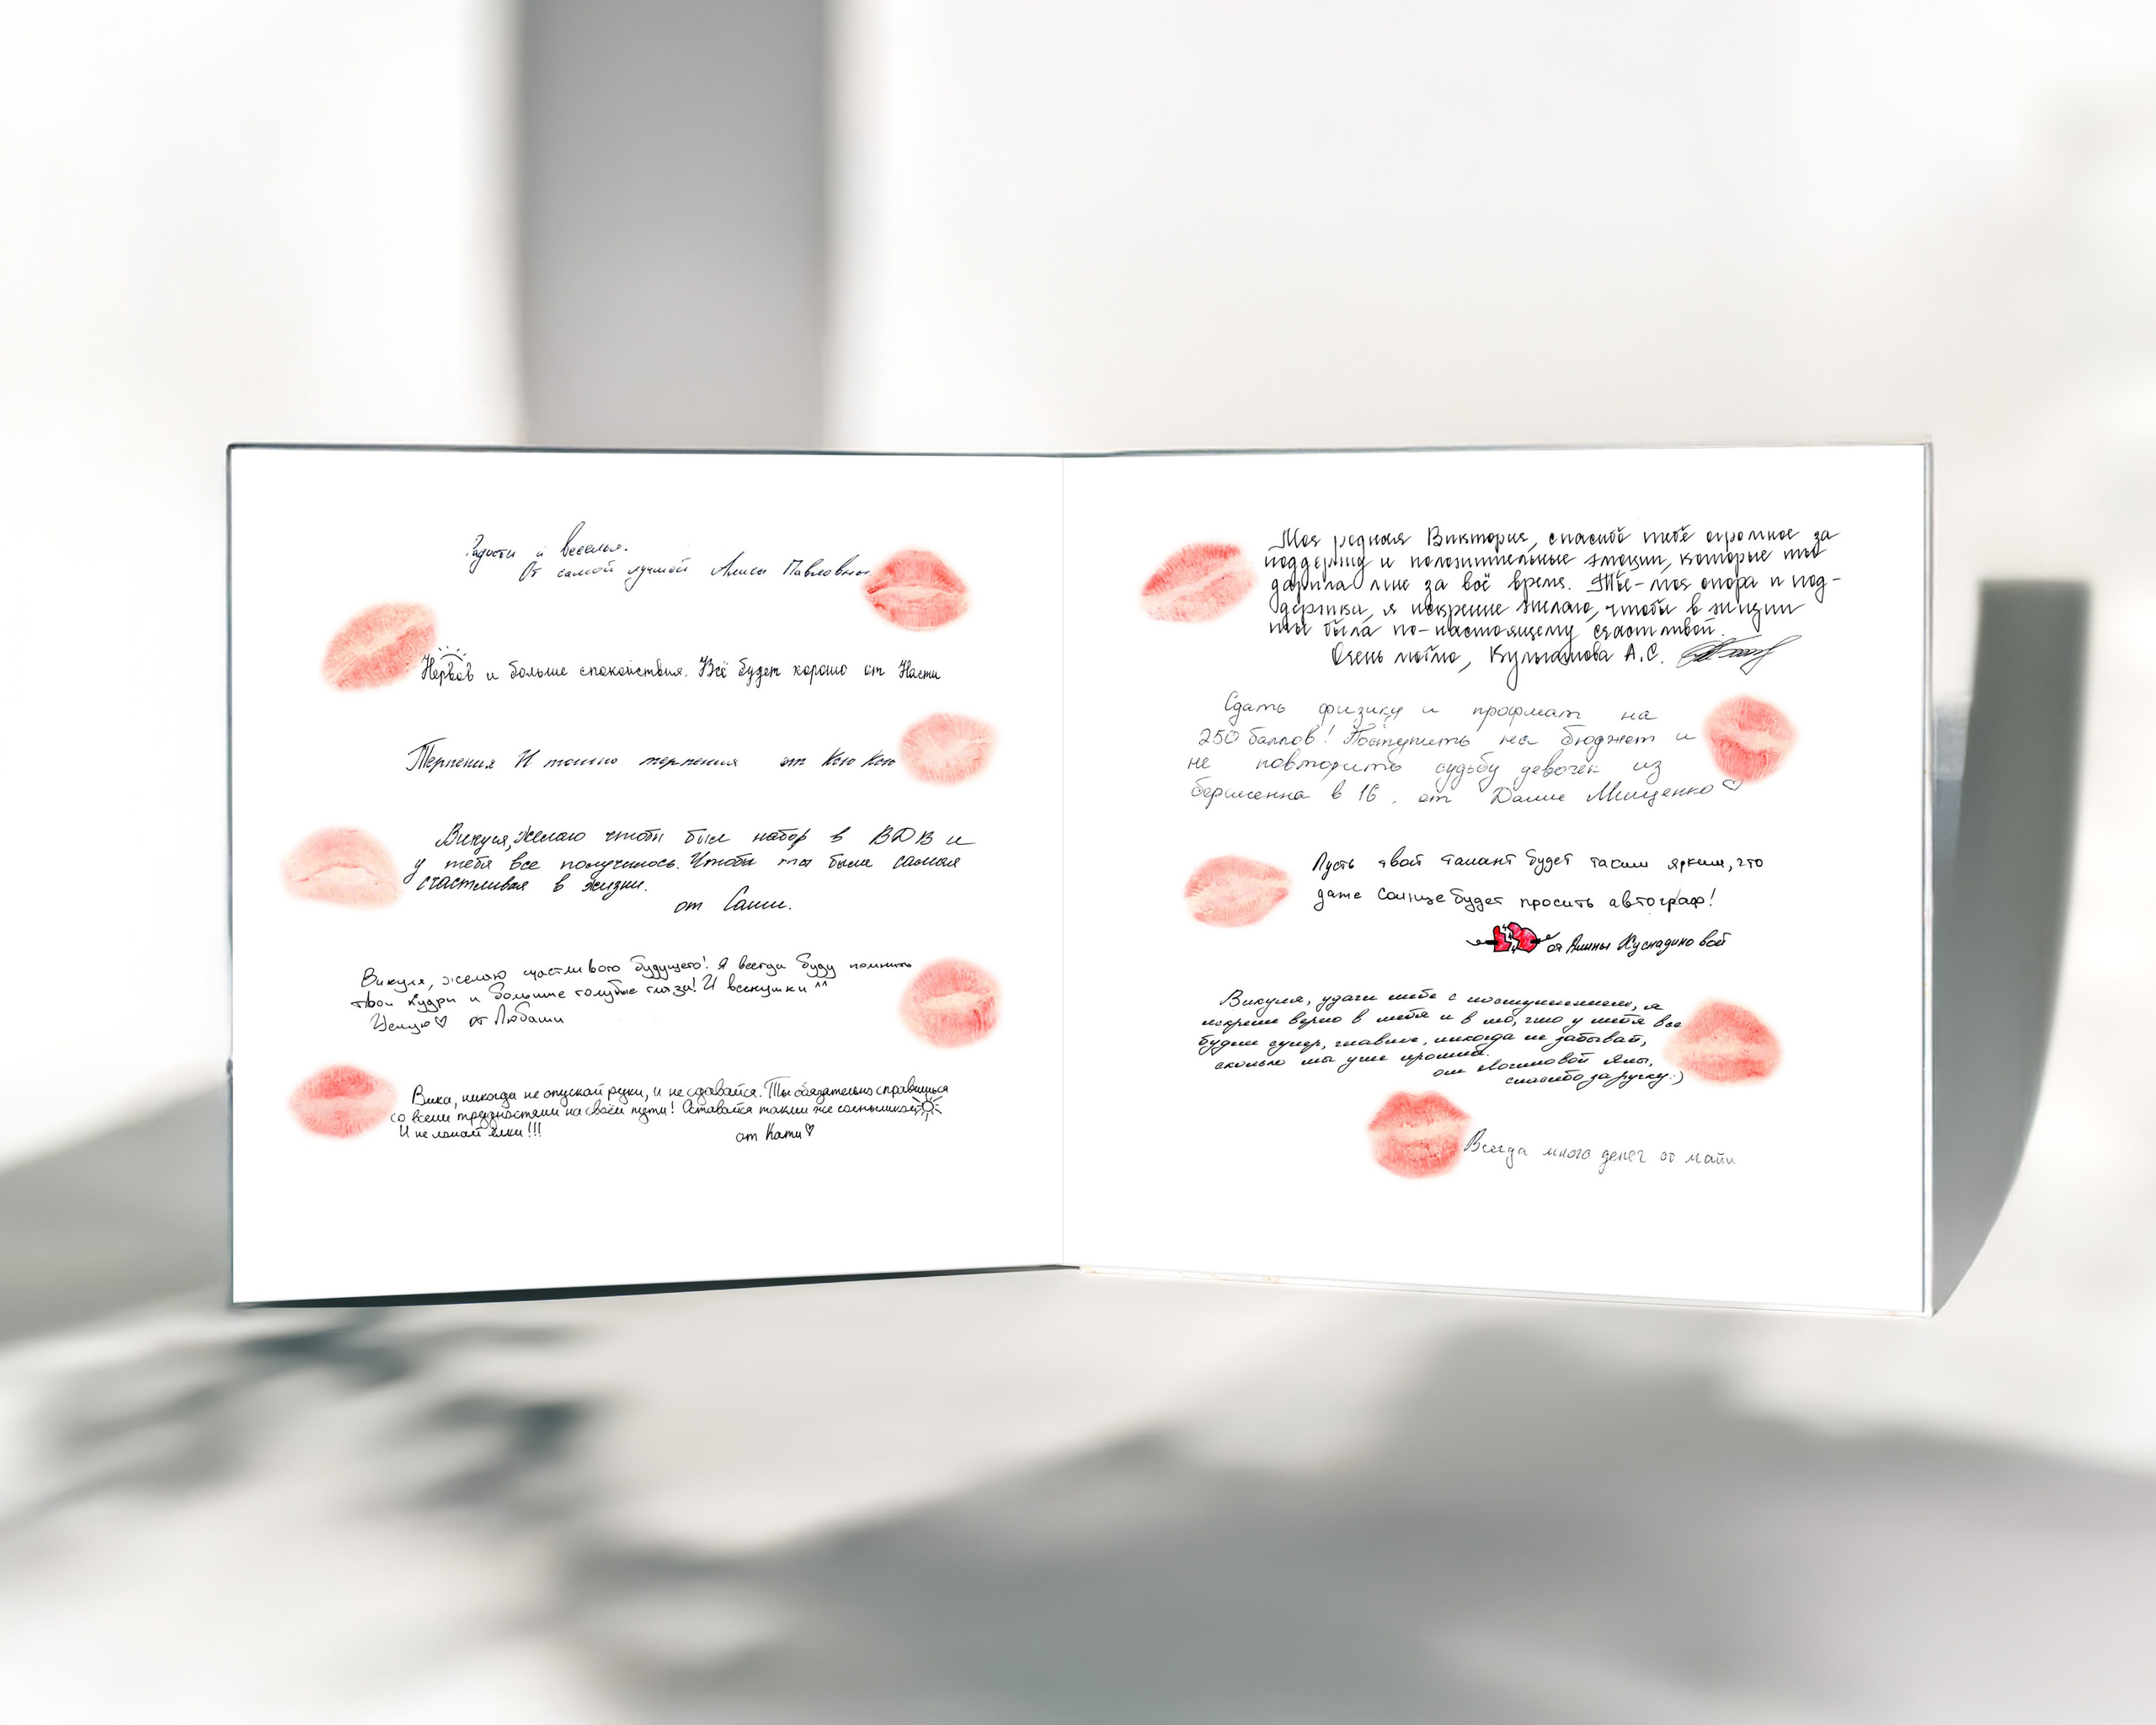 Радости и веселья.
От самой лучшей Алисы Павловны
Нервов и больше спокойствия. Всё будет хорошо от Насти
Терпения И только терпения от Кею Кею
Викуся, желаю чтобы был набор в ВДВ и
у тебя все получилось. Чтобы ты была самая
счастливая в жизни.
от Саши.
Викуля, желаю счастливого будущего! Я всегда буду помнить
твои кудри и большие голубые глаза! И веснушки ^^
Целую♡ от Любаши
Вика, никогда не опускай руки, и не сдавайся. Ты обязательно справишься
со всеми трудностями на своём пути! Оставайся таким же солнышком
И не ломай ёлки!!!
от Кати♡
Моя родная Виктория, спасибо тебе огромное за
поддержку и положительные эмоции, которые ты
дарила мне за всё время. Ты-моя опора и под-
держка, я искренне желаю, чтобы в жизни
ты была по-настоящему счастливой.
Очень люблю, А.С.
Сдать физику и профмат на
250 баллов! Поступить на бюджет и
не повторить судьбу девочек из
беременна в 16. от Даши Мищенко♡
Пусть твой талант будет таким ярким, что
даже Солнце будет просить автограф!
от Алины Хуснадиновой
Викуля, удачи тебе с поступлением, я
искренне верю в тебя и в то, что у тебя все
будет супер, главное, никогда не забывай,
сколько мы уже прошли.
от Логиновой Яны,
спасибо за ручку:)
Всегда много денег от майи